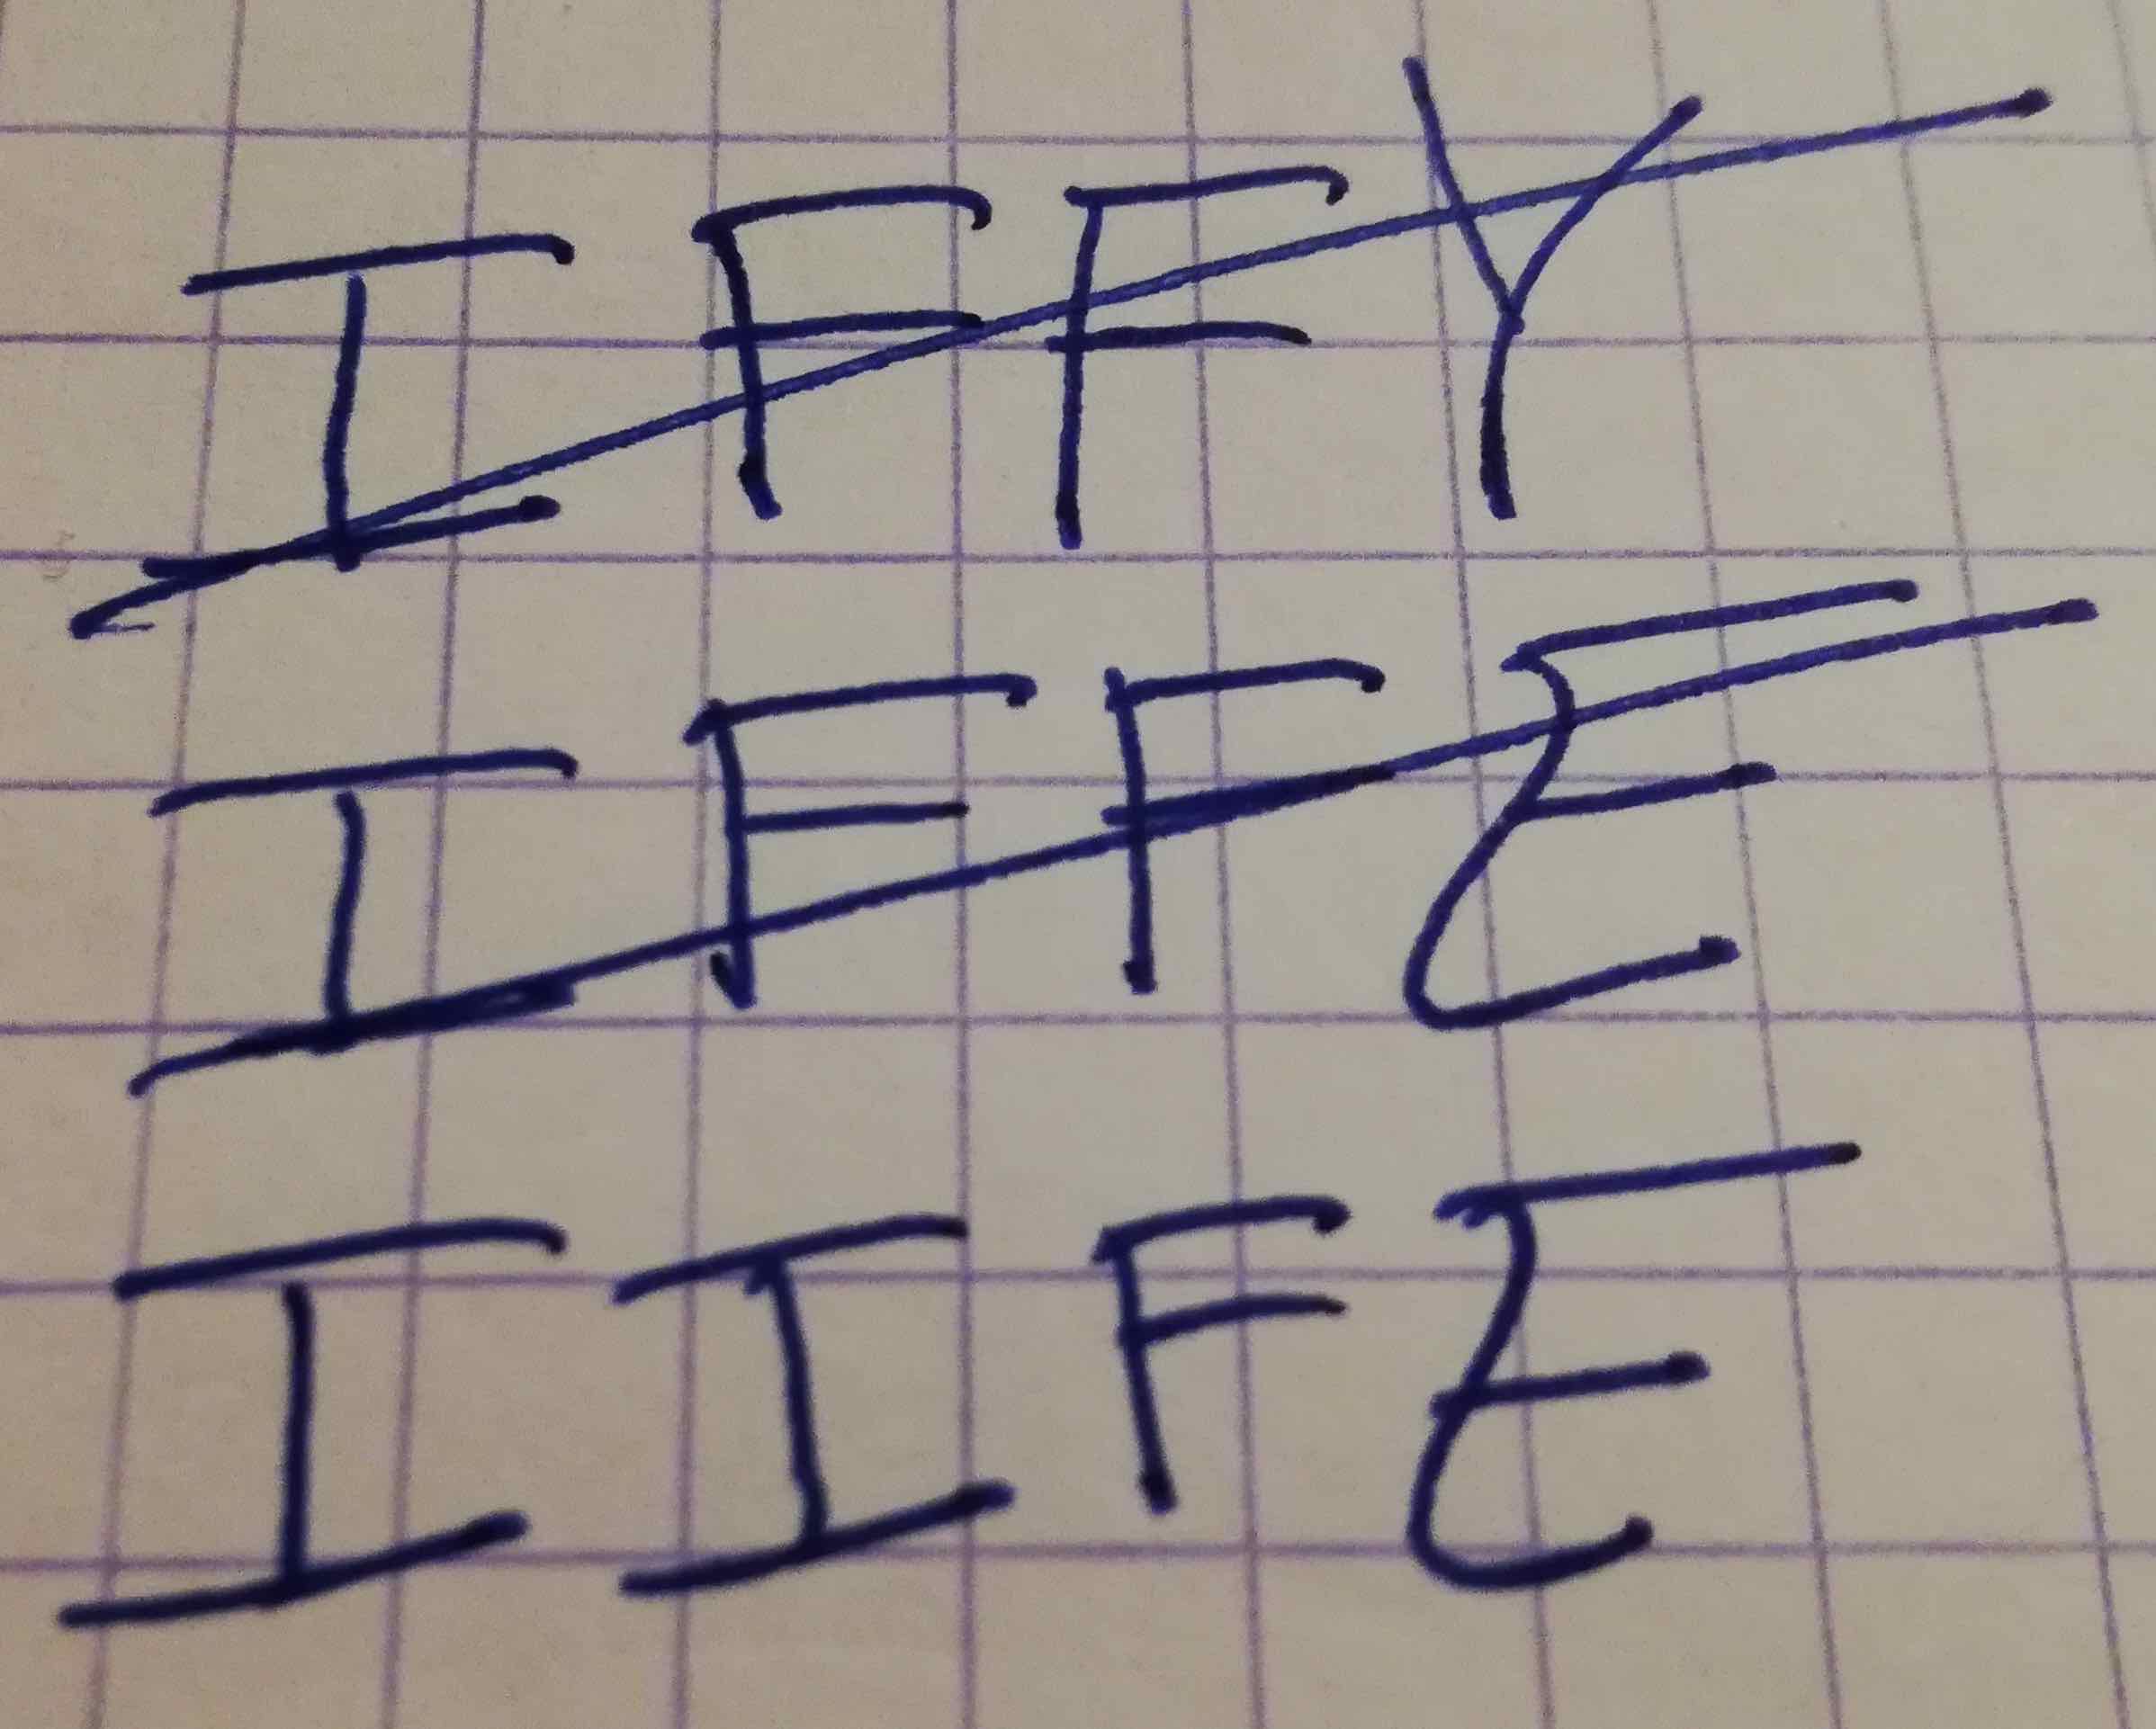 IFFY
IFFE
IIFE